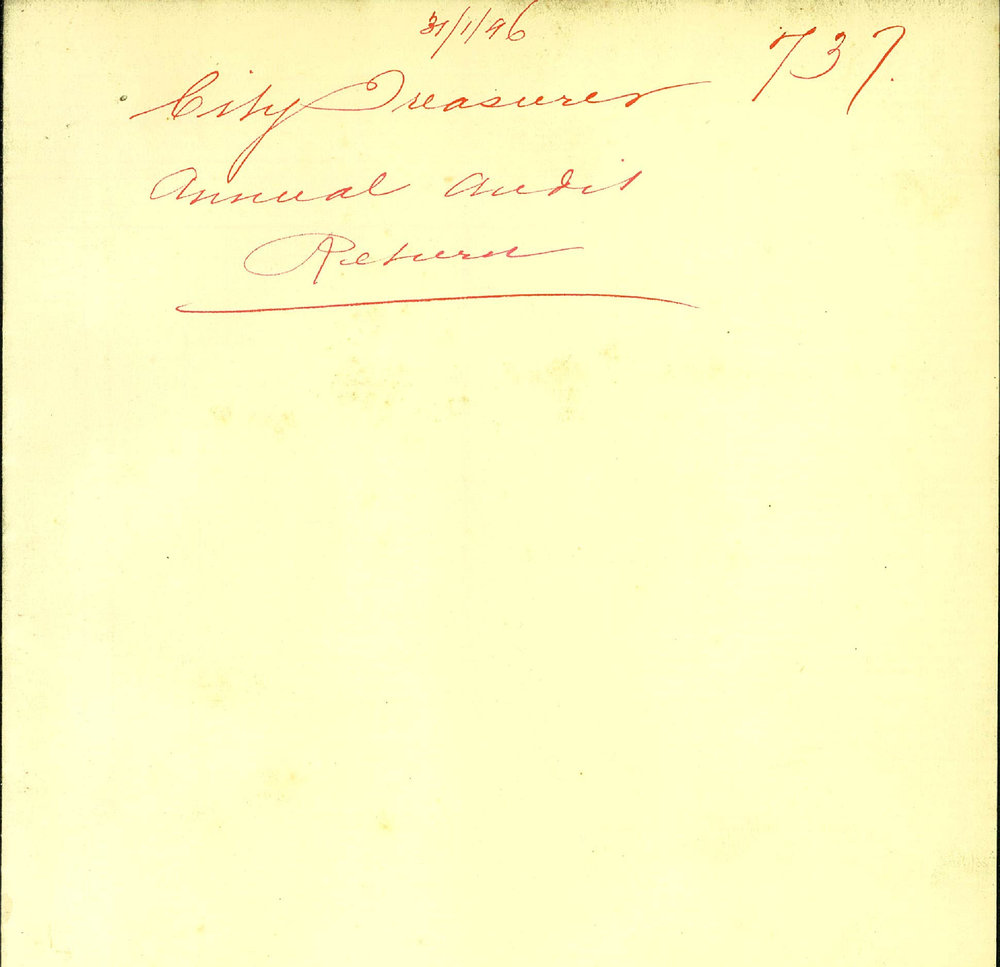 31/1/96
737.
City Treasurer
Annual Audit
Return